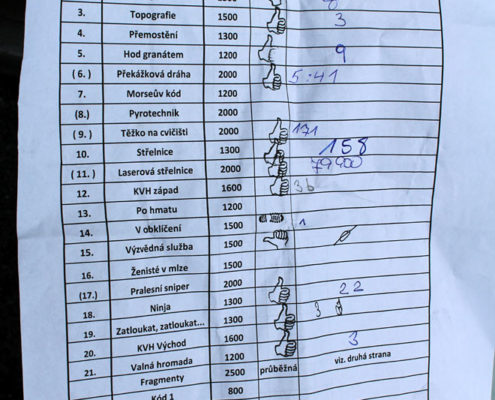 3. Topografie 1500 3
4. Přemostění 1300
5. Hod granátem 1200 9
(6.) Překážková dráha 2000 5:41
7. Morseův kód 1200
(8.) Pyrotechnik 2000
(9.) Těžko na cvičišti 2000 171
10. Střelnice 1300 158
(11.) Laserová střelnice 2000 79400
12. KVH západ 1600 3b
13. Po hmatu 1200
14. V obklíčení 1500 1
15. Výzvědná služba 1500
16. Ženisté v mlze 1500
(17.) Pralesní sniper 2000 22
18. Ninja 1300 3
19. Zatloukat, zatloukat... 1300
20. KVH Východ 1600 3
21. Valná hromada 1200 viz. druhá strana
Fragmenty 2500 průběžná
Kód 1 800